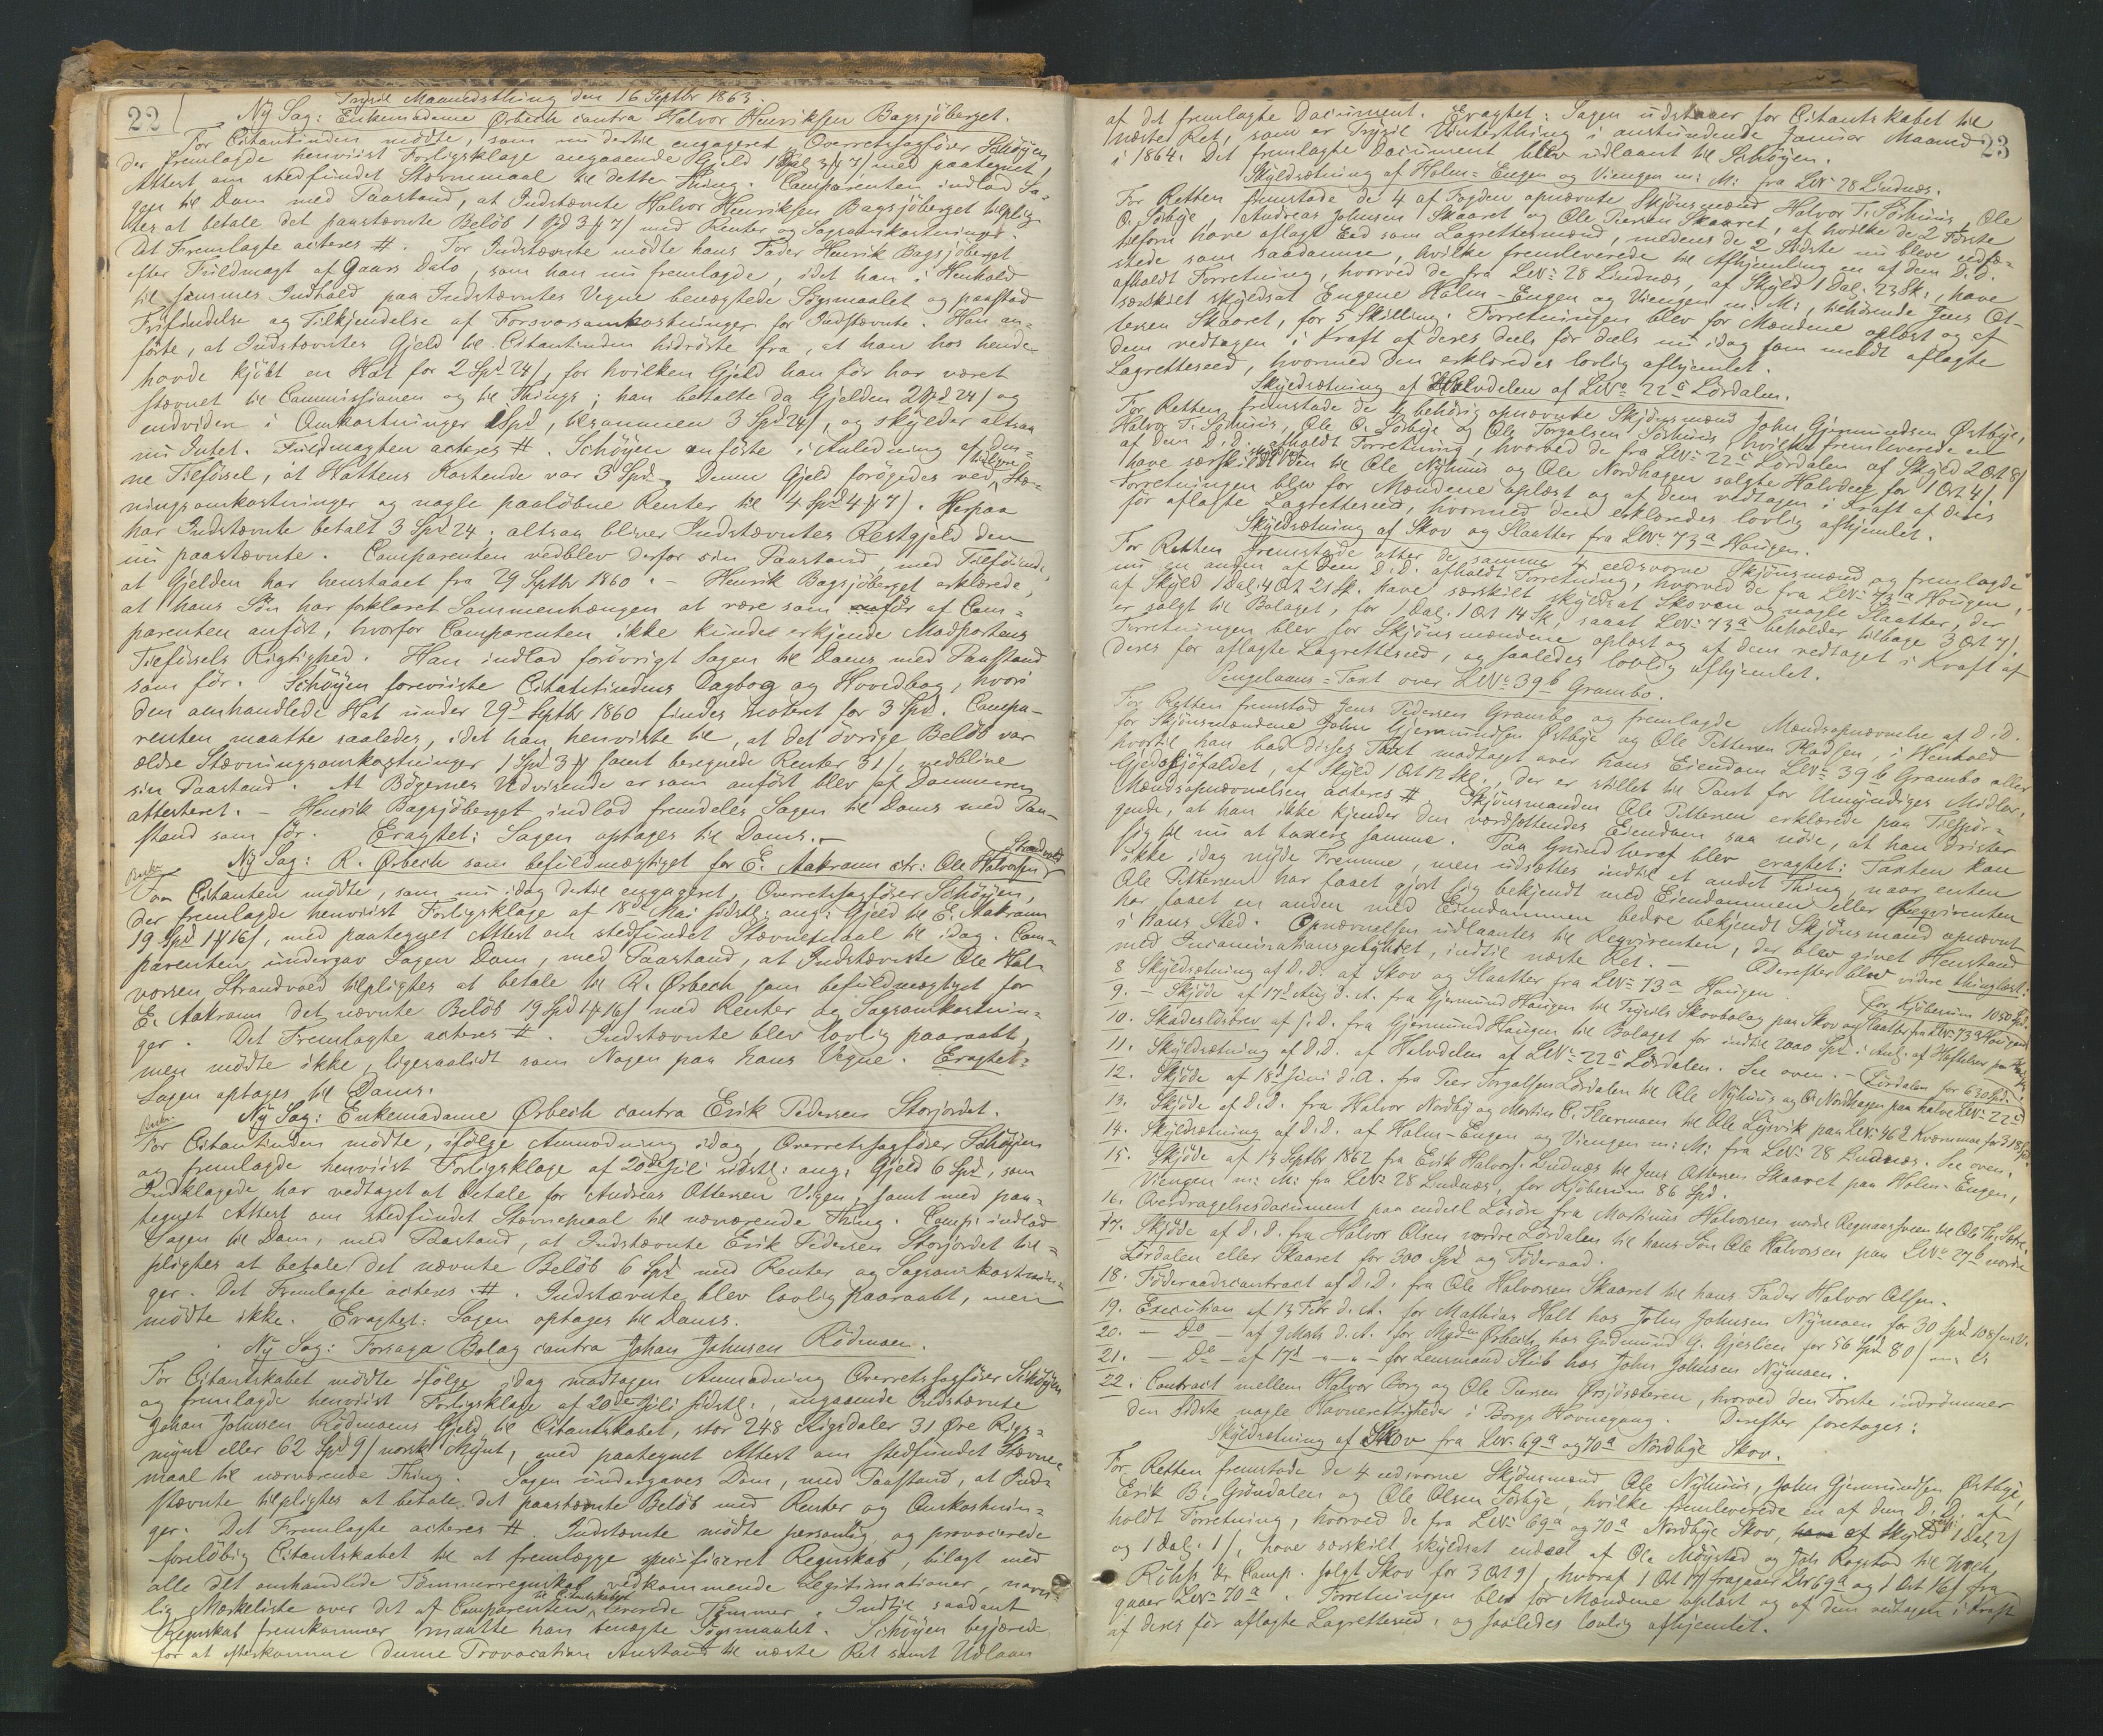 22
Trysil Maanedsthing den 16 Septbr 1863
Ny Sag: Enkemadame Ørbech contra Halvor Henriksen Bagsjöberget.
For Citantinden mödte, som nu dertil engageret, Overretssagförer Schöyen,
der fremlagde henviist Forligsklage angaaende Gjeld 1 Spd 3 # 7 / med paategnet
Attest om stedfundet Stævnemaal til dette Thing. Comparenten indlod Sa-
gen til Dom med Paastand, at Indstævnte Halvor Henriksen Bagsjöberget tilplig-
tes at betale det paastævnte Belöb 1 Spd 3 # 7 / med Renter og Sagsomkostninger.
Det Fremlagte acteres #. For Indstævnte mödte hans Fader Henrik Bagsjöberget
efter Fuldmagt af Gaars Dato, som han nu fremlagde, idet han i Henhold
til sammes Indhold paa Indstævntes Vegne benægtede Sögsmaalet og paastod
Frifindelse og Tilkjendelse af Forsvarsomkostninger for Indstævnte. Han an-
förte, at Indstævntes Gjeld til Citantinden hidrörte fra, at han hos hende
havde kjöbt en Hat for 2 Spd 24 /, for hvilken Gjeld han för har været
stævnet til Commissionen og til Things; han betalte da Gjelden 2 Spd 24 / og
endvidere i Omkostninger 1 Spd, tilsammen 3 Spd 24 /, og skylder altsaa
nu Intet. Fuldmagten acteres #. Schöyen anförte i Anledning af den-
ne Tilförsel, at Hattens Kostende var 3 Spd. Denne Gjeld forögedes ved tidligere Stæv-
ningsomkostninger og nogle paalöbne Renter til 4 Spd 4 # 7 /. Herpaa
har Indstævnte betalt 3 Spd 24; altsaa bliver Indstævntes Restgjeld den
nu paastævnte. Comparenten vedblev derfor sin Paastand, med Tilföiende,
at Gjelden har henstaaet fra 29 Septbr 1860. — Henrik Bagsjöberget erklærede,
at hans Sön har forklaret Sammenhængen at være som för af Com-
parenten anfört, hvorfor Comparenten ikke kunde erkjende Modpartens
Tilförsels Rigtighed. Han indlod forövrigt Sagen til Doms med Paastand
som för. Schöyen foreviiste Citantindens Dagbog og Hovedbog, hvori
den omhandlede Hat under 29de Septbr 1860 findes noteret for 3 Spd. Compa-
renten maatte saaledes, idet han henviste til, at det övrige Belöb var
ældre Stævningsomkostninger 1 Spd 3 # samt beregnede Renter 31 /, vedblive
sin Paastand. At Bögernes Udvisende er som anfört blev af Dommeren
attesteret. — Henrik Bagsjöberget indlod fremdeles Sagen til Doms med Paa-
stand som för. Eragtet: Sagen optages til Doms. —
Ny Sag: R. Ørbech som befuldmægtiget for E. Aakrann ctr: Ole Halvorsen Strandvold
For Citanten mödte, som nu idag dertil engageret, Overretssagförer Schöyen,
der fremlagde henviist Forligsklage af 18de Mai sidstl: ang: Gjeld til E. Aakrann
19 Spd 1 # 16 /, med paategnet Attest om stedfundet Stævnemaal til idag. Com-
parenten undergav Sagen Dom, med Paastand, at Indstævnte Ole Hal-
vorsen Strandvold tilpligtes at betale til R. Ørbech som befuldmægtiget for
E. Aakrann det nævnte Belöb 19 Spd 1 # 16 / med Renter og Sagsomkostnin-
ger. Det Fremlagte acteres #. Indstævnte blev lovlig paaraabt,
men mödte ikke, ligesaalidt som Nogen paa hans Vegne. Eragtet:
Sagen optages til Doms.
Ny Sag: Enkemadame Ørbech contra Erik Pedersen Storjordet.
For Citantinden mödte, ifölge Anmodning idag, Overretssagförer Schöyen
og fremlagde henviist Forligsklage af 20de Juli sidstl: ang: Gjeld 6 Spd, som
Indklagede har vedtaget at betale for Andreas Ottersen Vigen, samt med paa-
tegnet Attest om stedfundet Stævnemaal til nærværende Thing. Comp: indlod
Sagen til Dom, med Paastand, at Indstævnte Erik Pedersen Storjordet til-
pligtes at betale det nævnte Belöb 6 Spd med Renter og Sagsomkostnin-
ger. Det Fremlagte acteres #. Indstævnte blev lovlig paaraabt, men
mödte ikke. Eragtet: Sagen optages til Doms.
Ny Sag: Forsaga Bolag contra Johan Johnsen Rödmoen.
For Citantskabet mödte ifölge idag modtagen Anmodning Overretssagförer Schöyen
og fremlagde henviist Forligsklage af 20de Juli sidstl:, angaaende Indstævnte
Johan Johnsen Rödmoens Gjeld til Citantskabet, stor 248 Rigsdaler 31 Øre Rigs-
mynt eller 62 Spd 9 / norsk Mynt, med paategnet Attest om stedfundet Stævne-
maal til nærværende Thing. Sagen undergaves Dom, med Paastand, at Ind-
stævnte tilpligtes at betale det paastævnte Belöb med Renter og Omkostnin-
ger. Det Fremlagte acteres #. Indstævnte mödte personlig og provocerede
foreløbig Citantskabet til at fremlægge specificeret Regnskab, bilagt med
alle det omhandlede Tömmerregnskab vedkommende Legitimationer, navn-
lig Mærkeliste over det af Comparenten til Citantskabet leverede Tömmer. Indtil saadant
Regnskab fremkommer maatte han benægte Sögsmaalet. Schöyen begjærede
for at efterkomme denne Provocation Anstand til næste Ret samt Udlaan
23
af det fremlagte Document. Eragtet: Sagen udstaaer for Citantskabet til
næste Ret, som er Trysil Vinterthing i anstundende Januar Maaned
i 1864. Det fremlagte Document blev udlaant til Schöyen.
Skyldsætning af Holm-Engen og Viengen m: M: fra LNr 28 Lindnæs.
For Retten fremstode de 4 af Fogden opnævnte Skjönsmænd Halvor T. Sörhuus, Ole
O. Sörbye, Andreas Johnsen Skaaret og Ole Peersen Skaaret, af hvilke de 2 Förste
tilforn have aflagt Eed som Lagrettemænd, medens de 2 Sidste nu bleve edfæ-
stede som saadanne, hvilke fremleverede til Afhjemling en af dem d. D.
afholdt Forretning, hvorved de fra LNr 28 Lindnæs, af Skyld 1 Dal. 23 Sk:, have
særskilt skyldsat Engene Holm-Engen og Viengen m: M:, tilhörende Jens Ot-
tersen Skaaret, for 5 Skilling. Forretningen blev for Mændene oplæst og af
dem vedtagen i Kraft af deres deels för deels nu idag som meldt aflagte
Lagretteseed, hvormed den erklæredes lovlig afhjemlet.
Skyldsætning af Halvdelen af LNr 22c Lördalen.
For Retten fremstode de 4 behörig opnævnte Skjönsmænd John Gjermundsen Østbye,
Halvor T. Sörhuus, Ole O. Sörbye og Ole Torgalsen Sörhuus, hvilke fremleverede en
af dem d. D. afholdt Forretning, hvorved de fra LNr 22c Lördalen af Skyld 2 Ort 8 /
have særskilt skyldsat den til Ole Nyhuus og Ole Nordhagen solgte Halvdeel for 1 Ort 4 /.
Forretningen blev for Mændene oplæst og af dem vedtagen i Kraft af deres
för aflagte Lagretteseed, hvormed den erklæredes lovlig afhjemlet.
Skyldsætning af Skov og Slaatter fra LNr 73a Haugen.
For Retten fremstode atter de samme 4 eedsvorne Skjönsmænd og fremlagde
nu en anden af dem d. D. afholdt Forretning, hvorved de fra LNr 73a Haugen,
af Skyld 1 Dal. 4 Ort 21 Sk. have særskilt skyldsat Skoven og nogle Slaatter, der
er solgt til Bolaget, for 1 Dal. 1 Ort 14 Sk, saaat LNr 73a beholder tilbage 3 Ort 7 /.
Forretningen blev for Skjönsmændene oplæst og af dem vedtaget i Kraft af
deres för aflagte Lagretteseed, og saaledes lovlig afhjemlet.
Pengelaans-Taxt over LNr 39b Grambo.
For Retten fremstod Jens Pedersen Grambo og fremlagde Mændsopnævnelse af d. D.
for Skjönsmændene John Gjermundsen Østbye og Ole Pettersen Pladsen, i Henhold
hvortil han bad disses Taxt modtaget over hans Eiendom LNr 39b Grambo eller
Gjedskjöfaldet, af Skyld 1 Ort 12 Skl., der er stillet til Pant for Umyndiges Midler.
Mændsopnævnelsen acteres # Skjönsmanden Ole Pettersen erklærede paa Tilspör-
gende, at han ikke kjender den værdsættendes Eiendom saa nöie, at han drister
sig til nu at taxere samme. Paa Grund heraf blev eragtet: Taxten kan
ikke idag nyde Fremme, men udsættes indtil et andet Thing, naar enten
Ole Pettersen har faaet gjort sig bekjendt med Eiendommen eller Reqvirenten
har faaet en anden med Eiendommen bedre bekjendt Skjönsmand opnævnt
i hans Sted. Opnævnelsen udlaantes til Reqvirenten, der blev givet Henstand
med Incaminationsgebyhret, indtil næste Ret. — Derefter blev videre thinglæst:
8 Skyldsætning af d. D. af Skov og Slaatter fra LNr 73a Haugen.
9. — Skjöde af 17de Aug d. A. fra Gjermund Haugen til Trysils Skovbolag paa Skov og Slaatter fra LNr 73a Haugen for Kjöbesum 1050 Spd.
10. Skadeslösbrev af s. D. fra Gjermund Haugen til Bolaget for indtil 2000 Spd i Anl. af Heftelser paa
11. Skyldsætning af d. D. af Halvdelen af LNr 22c Lördalen. See oven. —
12. Skjöde af 18de Juni d. A. fra Peer Torgalsen Lördalen til Ole Nyhuus og O. Nordhagen paa halve LNr 22c Lördalen for 630 Spd.
13. Skjöde af d. D. fra Halvor Nordby og Martin C. Fleermoen til Ole Lysvik paa LNr 462 Kværnmoe for 318 Spd.
14. Skyldsætning af d. D. af Holm-Engen og Viengen m: M: fra LNr 28 Lindnæs. See oven.
15. Skjöde af 13 Septbr 1862 fra Erik Halvors. Lindnæs til Jens Ottersen Skaaret paa Holm-Engen,
Viengen m: M: fra LNr 28 Lindnæs, for Kjöbesum 86 Spd.
16. Overdragelsesdocument paa endeel Lösöre fra Martinus Halvorsen nordre til Ole Th.
17. Skjöde af d. D. fra Halvor Olsen nordre Lördalen til hans Sön Ole Halvorsen paa LNr 27b nordre
Lördalen eller Skaaret for 300 Spd og Föderaad.
18. Föderaadscontract af d. D. fra Ole Halvorsen Skaaret til hans Fader Halvor Olsen.
19. Execution af 13 Febr d. A. for Mathias Holt hos John Johnsen Nymoen for 30 Spd 108 / m. V.
20. — Do — af 9 Marts d. A. for Mad. Ørbech hos Gudmund G. Gjerslien for 56 Spd 80 / m. V.
21. — Do — af 17de — — for Lensmand Stub hos John Johnsen Nymoen.
22. Contract mellem Halvor Borg og Ole Peersen Örsjösæteren, hvorved den Förste indrömmer
den Sidste nogle Havnerettigheder i Borgs Havnegang. Derefter foretages:
Skyldsætning af Skov fra LNr 69a og 70a Nordbye Skov.
For Retten fremstode de 4 eedsvorne Skjönsmænd Ole Nyhuus, John Gjermundsen Østbye,
Erik B. Gröndalen og Ole Olsen Sörbye, hvilke fremleverede en af dem d. D. af-
holdt Forretning, hvorved de fra LNr 69a og 70a Nordbye Skov, af Skyld resp: 1 Dal. 2 /
og 1 Dal. 1 /, have særskilt skyldsat endeel af Ole Möystad og Jols Rogstad til
& Comp. solgt Skov for 3 Ort 9 /, hvoraf 1 Ort 17 / fragaaer LNr 69a og 1 Ort 16 / fra-
gaaer LNr 70a. Forretningen blev for Mændene oplæst og af dem vedtagen i Kraft
af deres för aflagte Lagretteseed, og saaledes lovlig afhjemlet.